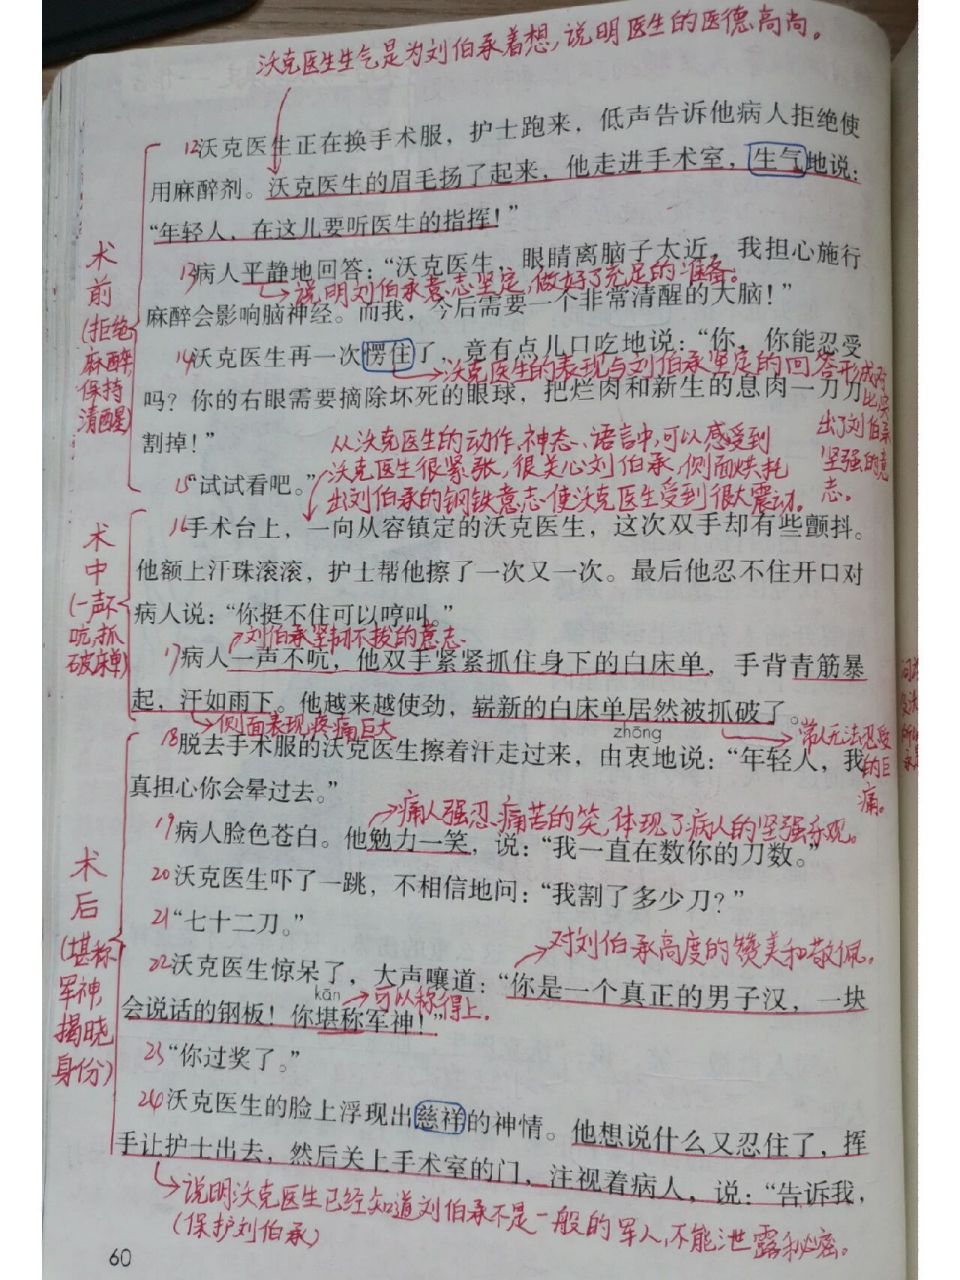 沃克医生生气是为刘伯承着想，说明医生的医德高尚。
12沃克医生正在换手术服，护士跑来，低声告诉他病人拒绝使
用麻醉剂。沃克医生的眉毛扬了起来，他走进手术室，生气地说：
“年轻人，在这儿要听医生的指挥！”
术前
（拒绝麻醉，保持清醒）
13病人平静地回答：“沃克医生，眼睛离脑子太近，我担心施行
说明刘伯承意志坚定，做好了充足的准备。
麻醉会影响脑神经。而我，今后需要一个非常清醒的大脑！”
14沃克医生再一次愣住了，竟有点儿口吃地说：“你，你能忍受
沃克医生的表现与刘伯承坚定的回答形成对比，突出了刘伯承坚强的意志。
吗？你的右眼需要摘除坏死的眼球，把烂肉和新生的息肉一刀刀
割掉！”
从沃克医生的动作、神态、语言中，可以感受到
沃克医生很紧张，很关心刘伯承，侧面烘托
出刘伯承的钢铁意志使沃克医生受到很大震动。
15“试试看吧。”
术中
（一声不吭，抓破床单）
16手术台上，一向从容镇定的沃克医生，这次双手却有些颤抖。
他额上汗珠滚滚，护士帮他擦了一次又一次。最后他忍不住开口对
病人说：“你挺不住可以哼叫。”
刘伯承坚韧不拔的意志
17病人一声不吭，他双手紧紧抓住身下的白床单，手背青筋暴
起，汗如雨下。他越来越使劲，崭新的白床单居然被抓破了。
侧面表现疼痛巨大
常人无法忍受的巨痛。
zhōng
18脱去手术服的沃克医生擦着汗走过来，由衷地说：“年轻人，我
真担心你会晕过去。”
病人强忍痛苦的笑，体现了病人的坚强乐观。
19病人脸色苍白。他勉力一笑，说：“我一直在数你的刀数。”
术后
（堪称军神，揭晓身份）
20沃克医生吓了一跳，不相信地问：“我割了多少刀？”
21“七十二刀。”
对刘伯承高度的赞美和敬佩。
22沃克医生惊呆了，大声嚷道：“你是一个真正的男子汉，一块
kān
可以称得上。
会说话的钢板！你堪称军神！”
23“你过奖了。”
24沃克医生的脸上浮现出慈祥的神情。他想说什么又忍住了，挥
手让护士出去，然后关上手术室的门，注视着病人，说：“告诉我，
说明沃克医生已经知道刘伯承不是一般的军人，不能泄露秘密。
（保护刘伯承）
60